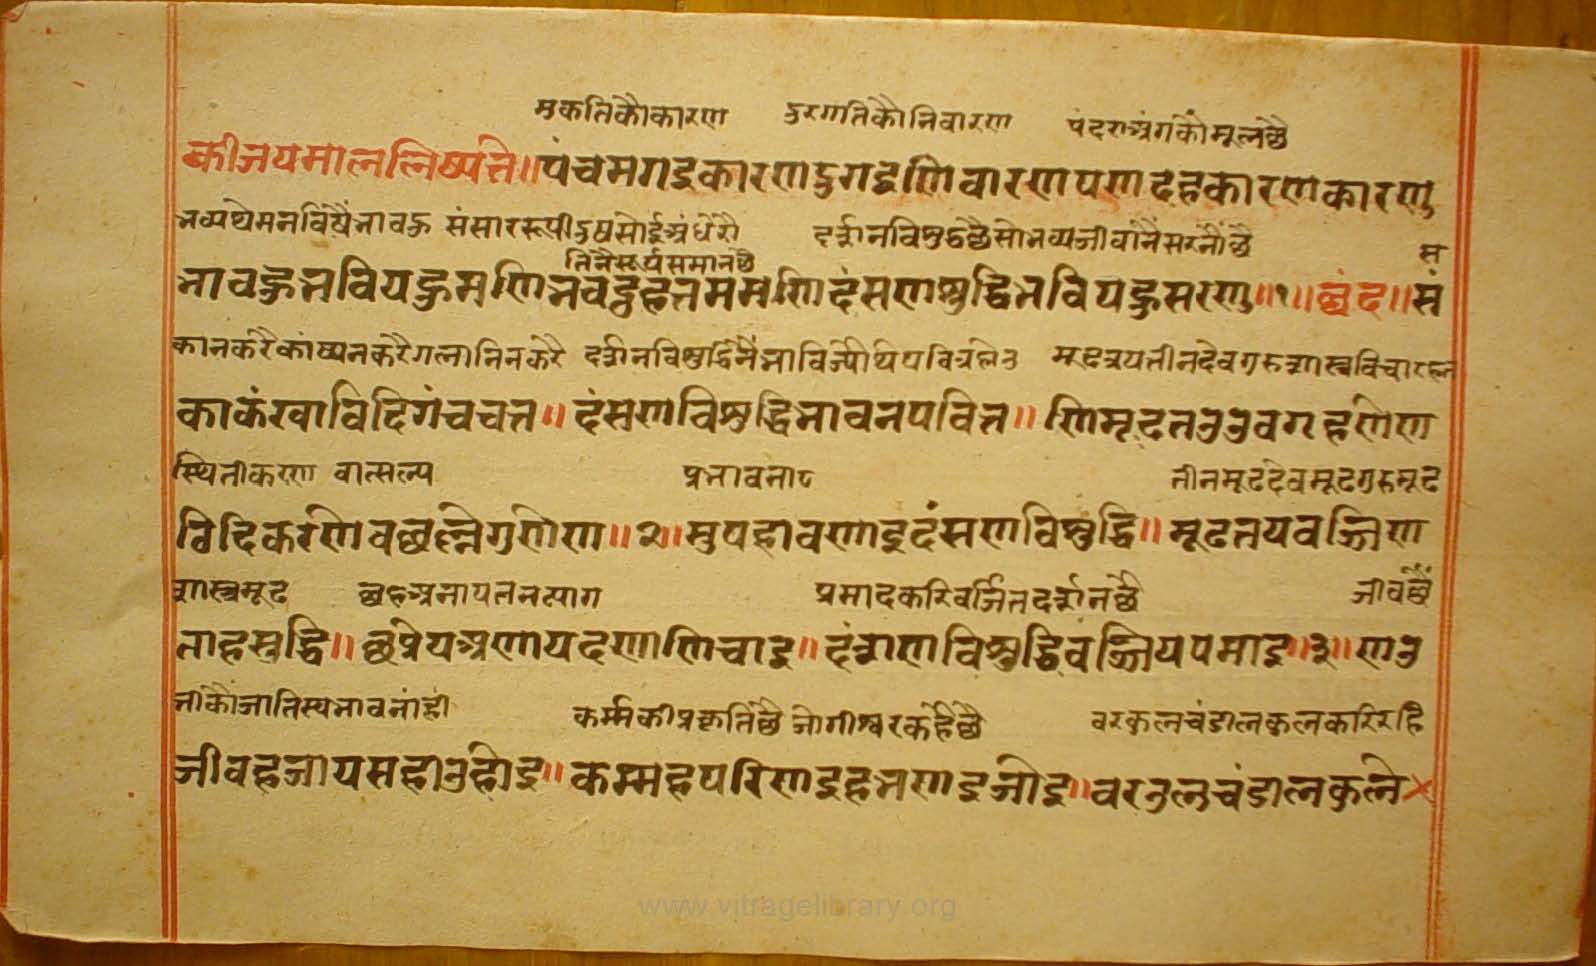 मुकतिकौकारण दुरगतिकौनिवारण पंदराअंगकौमूलछै
कीजयमाललिष्यते॥पंचमगइकारणदुगइणिवारणपणदहकारणकारणु
भव्यथेमनविषैंभावऊ संसाररूपीदुषसोईअंधेरौ दर्शनविशुद्धछैसोभव्यजीवांनैसरनौंछै
तिनैसूर्यसमानछै सं
भावहुभवियहुमणिभवदुहतममणिदंसणशुद्धिभवियहुसरणु॥१॥छंद॥सं
कानकरैकांष्यनकरैगलानिनकरै दर्शनविशुद्धिनैंभाविज्यौ मूढत्रयतीनदेवगुरुशास्त्रविचार
काकंखाविदिगंचचत्त॥दंसणविशुद्धिभावनपवित्त॥णिमूढतउउवगहणेण
स्थितीकरण वात्सल्य प्रभावना८ तीनमूढदेवमूढगुरुमूढ
विदिकरणेवछल्लेगुणेण॥२॥सुपहावणाइदंसणविशुद्धि॥मूढत्तयवज्जिण
शास्त्रमूढ छहअनायतनत्याग प्रमादकरिवर्जितदर्शनछै जीवछै
ताहसुद्धि॥छप्रेयअणायदणाणिचाइ॥दंशणविशुद्धिवज्जियपमाइ॥३॥णउ
जीकौजातिस्वभावनांही कर्म्मकीप्रकृतिछैजोगीश्वरकहैछै वरकुलचंडालकुलकरिरहि
जीवहजायसहाउहोइ॥कम्महपरिणइहभणइजोइ॥वरउलचंडालकुले
www.vitragelibrary.org